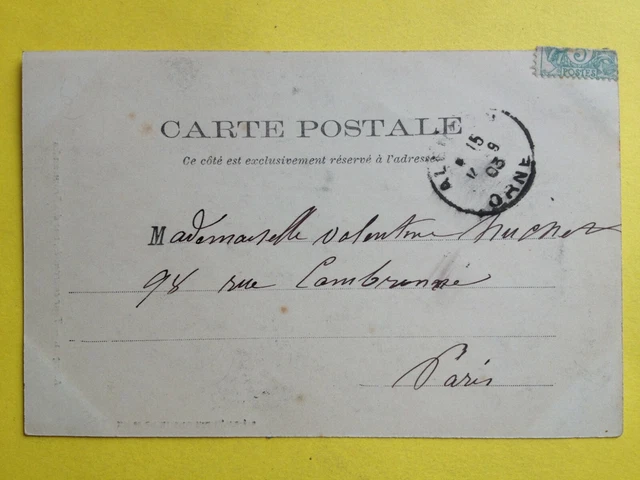 5
POSTES
CARTE POSTALE
Ce côté est exclusivement réservé à l'adresse.
AL
15
9
03
ORNE
Mademoiselle Valentine
98 rue Cambronne
Paris